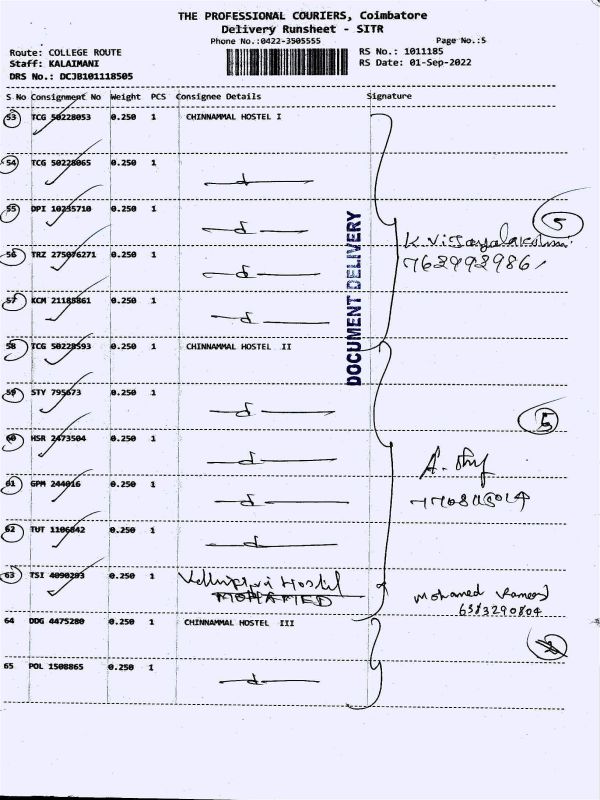 THE PROFESSIONAL COURIERS, Coimbatore
Delivery Runsheet - SITR
Phone No.:0422-3505555 Page No.:5
Route: COLLEGE ROUTE RS No.: 1011185
Staff: KALAIMANI RS Date: 01-Sep-2022
DRS No.: DCJB101118505
S No Consignment No Weight PCS Consignee Details Signature
53 TCG 50228053 0.250 1 CHINNAMMAL HOSTEL I
54 TCG 50228065 0.250 1
55 DPI 10235710 0.250 1
5
K. Vijayalakshmi
56 TRZ 275076271 0.250 1
762992986
57 KCM 21185861 0.250 1
DOCUMENT DELIVERY
58 TCG 50228593 0.250 1 CHINNAMMAL HOSTEL II
59 STY 795673 0.250 1
5
60 HSR 2473504 0.250 1
61 GPM 244016 0.250 1
62 TUT 1106842 0.250 1
63 TSI 4090293 0.250 1 Hostel
MOHAMED
Mohamed
6383290804
64 DDG 4475280 0.250 1 CHINNAMMAL HOSTEL III
65 POL 1508865 0.250 1